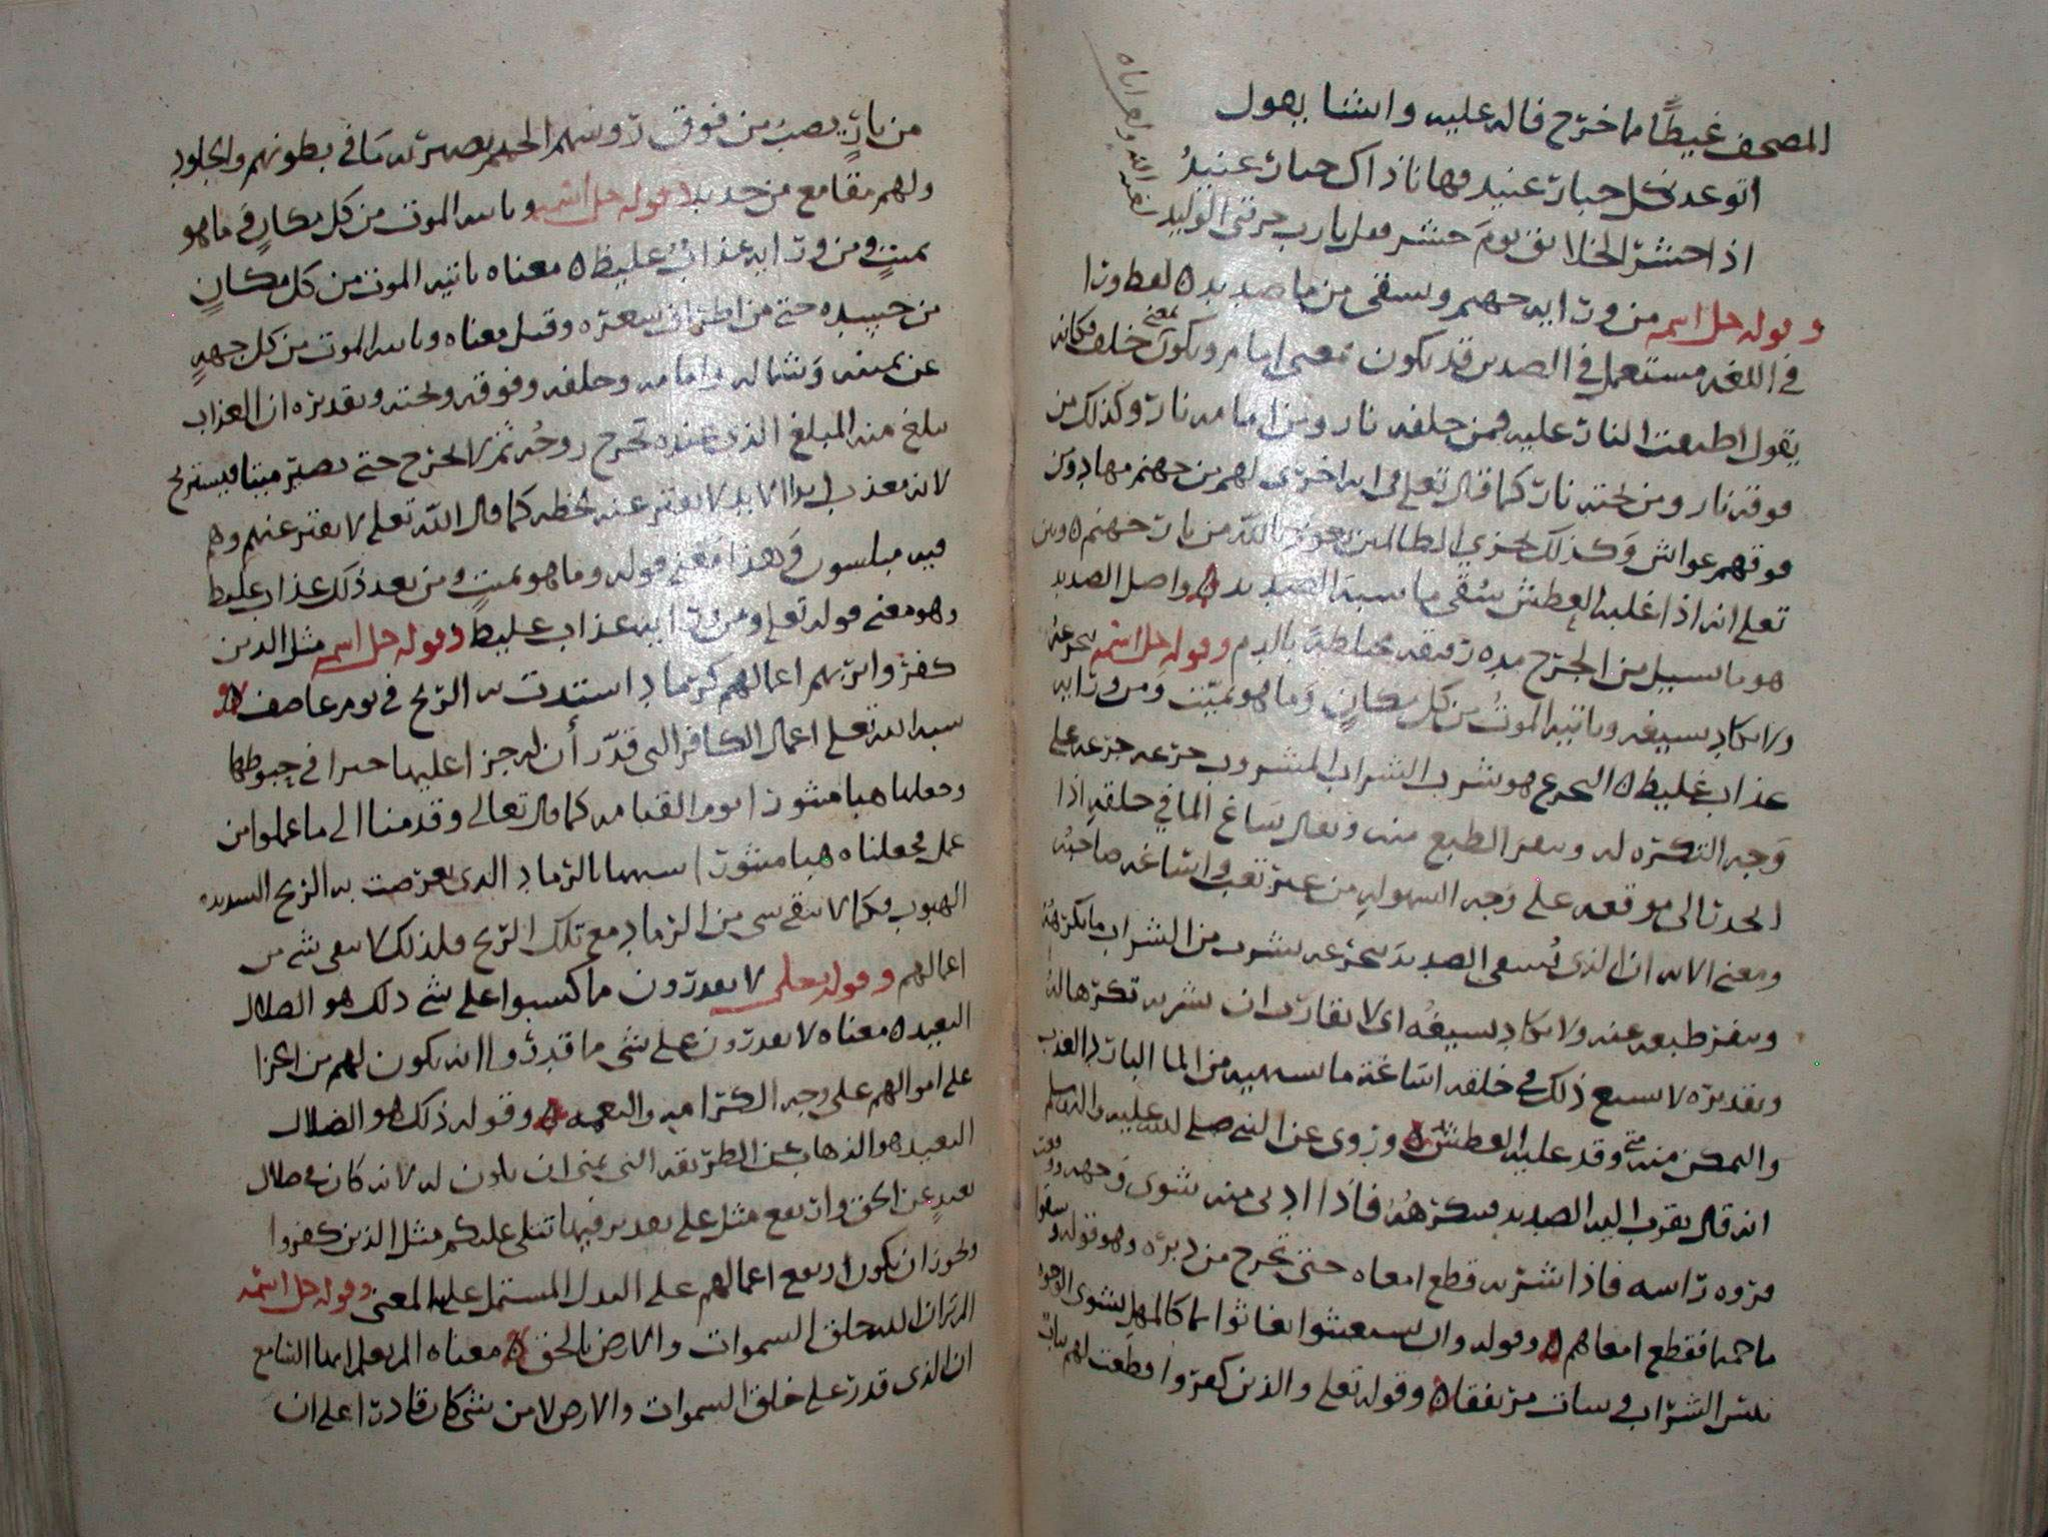 المصحف غيظًا مما خرج فاله عليه وانشا يقول
اتوعد كل جبار عنيد فها انا ذاك جبار عنيدُ
اذا حشر الخلائق يوم حشر فقل يا رب حرقني الوليد
لعنه الله واهراباه
وقوله جل اسمه من ورايه جهنم ويسقى من ما صديد ه لفظ ورا
في اللغه مستعمل في الضدين قد يكون بمعنى امام ويكون بمعنى خلف فكانه
يقول اطبقت النار عليه فمن خلفه نار ومن امامه نار وكذلك من
فوقه نار ومن تحته نار كما قال تعلى في ايه اخرى لهم من جهنم مهاد ومن
فوقهم غواش وكذلك نجزي الظالمين نعوذ بالله من نار جهنم ه وبين
تعلى انه اذا غلبه العطش سُقى ما يشبه الصديد ه واصل الصديد
هو ما يسيل من الجرح مده رقيقه مختلطة بالدم وقوله جل اسمه يتجرعه
ولا يكاد يسيغه وياتيه الموتُ من كل مكانٍ وما هو بميّت ومن ورايه
عذاب غليظ ه التجرع هو شرب الشراب المشروب جرعه جرعه على
وجه التكره له ونفر الطبع منه ويقال ساغ الما في حلقهِ اذا
انحدر الى موقعه على وجه السهوله من غير تعب واساغه صاحبُه
ومعنى الايه ان الذى يُسقى الصديد يتجرعه يشرب من الشراب ما يكرهُهُ
وينفر طبعه عنه ولا يكاد يسيغُه اى لا يقارب ان يشربه تكرها لهُ
وتقديره لا يسيغ ذلك في حلقه اساغة ما يشتهيه من الما البارد العذب
والتمكن منه متى وقد عليه العطش ه وروى عن النبي صلى الله عليه واله وسلم
انه قال يقرب اليه الصديد فيكرهُهُ فاذا ادنى منه شوى وجهه ووقعت
فروه راسه فاذا شربه قطع امعاه حتى تخرج من دبره وهو قوله وسقوا
ما حميما فقطع امعاهم ه وقوله وان يستغيثوا يغاثوا بما كالمهل يشوى الوجوه
بئس الشراب وساات مرتفقا ه وقوله تعلى والذين كفروا قطعت لهم ثياب
من نارٍ يصب من فوق روسهم الحميم يصهر به ما في بطونهم والجلود
ولهم مقامع من حديد ه وقوله جل اسمه وياتيه الموت من كل مكانٍ وما هو
بميتٍ ومن ورايه عذابٌ غليظ ه معناه ياتيه الموت من كل مكانٍ
من جسده حتى من اطراف شعره وقيل معناه وياتيه الموت من كل جههٍ
عن يمينه وشماله وامامه وخلفه وفوقه وتحته وتقديره ان العذاب
يبلغ منه المبلغ الذى عنده تخرج روحُه ثم لا تخرج حتى يصير ميتا فيستريح
لانه معذب ابدا الابد لا يفتر عنه لحظه كما قال الله تعلى لا يفتر عنهم وهم
فيه مبلسون وهذا معنى قوله وما هو بميتٍ ومن بعد ذلك عذاب غليظ
وهو معنى قوله تعلى ومن ورايه عذاب غليظ وقوله جل اسمه مثل الذين
كفروا بربهم اعمالهم كرماد اشتدت به الريح في يوم عاصف ه
شبه الله تعلى اعمال الكافر التى قدّر أن له جزا عليها خيرا في حبوطها
وجعلها هبا منثورا يوم القيامه كما قال تعالى وقدمنا الى ما عملوا من
عمل فجعلناه هبا منثورا شبهها بالرماد الذى تعرضت به الريح الشديده
الهبوب فكما لا يبقى شى من الرماد مع تلك الريح فلذلك لا يبقى شى من
اعمالهم وقوله تعلى لا يقدرون مما كسبوا على شى ذلك هو الضلال
البعيد ه معناه لا يقدرون على شى ما قدروا انه يكون لهم من الجزا
على اموالهم على وجه الكرامه والنعمه ه وقوله ذلك هو الضلال
البعيد هو الذهاب عن الطريقه التى يمنى ان يكون له لانه كان في ضلال
بعيدٍ عن الحق وارتفع مثل على تقدير فيما نتلى عليكم مثل الذين كفروا
ويجوز ان يكون ارتفع اعمالهم على البدل المشتمل عليه المعنى وقوله جل اسمه
الم تر ان الله خلق السموات والارض بالحق ه معناه الم تعلم ايها السامع
ان الذى قدر على خلق السموات والارض لا من شى كان قادرا على ان